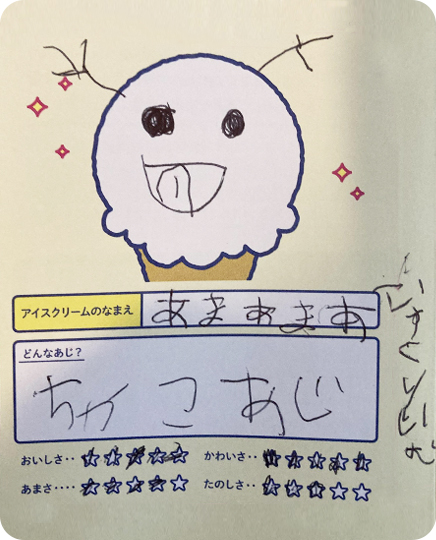 アイスクリームのなまえ
あまあまあ
いすくりいむ
どんなあじ？
ちょこあじ
おいしさ‥ ★★★★★
かわいさ‥ ★★★★★
あまさ‥‥ ★★★★☆
たのしさ‥ ★★★☆☆